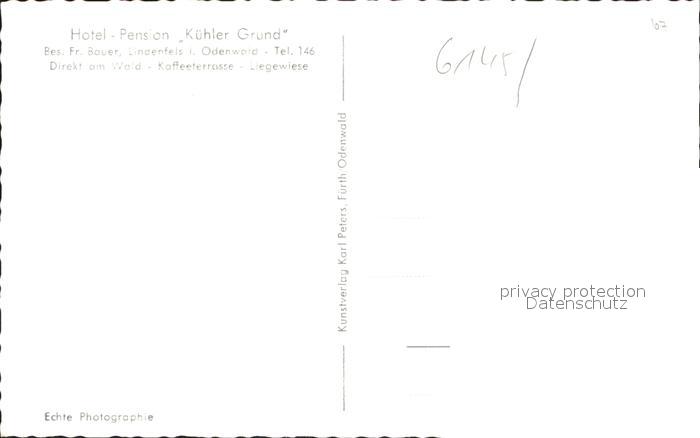 Hotel - Pension „Kühler Grund“
Bes. Fr. Bauer, Lindenfels i. Odenwald - Tel. 146
Direkt am Wald - Kaffeeterrasse - Liegewiese
Kunstverlag Karl Peters, Fürth/Odenwald
privacy protection
Datenschutz
Echte Photographie